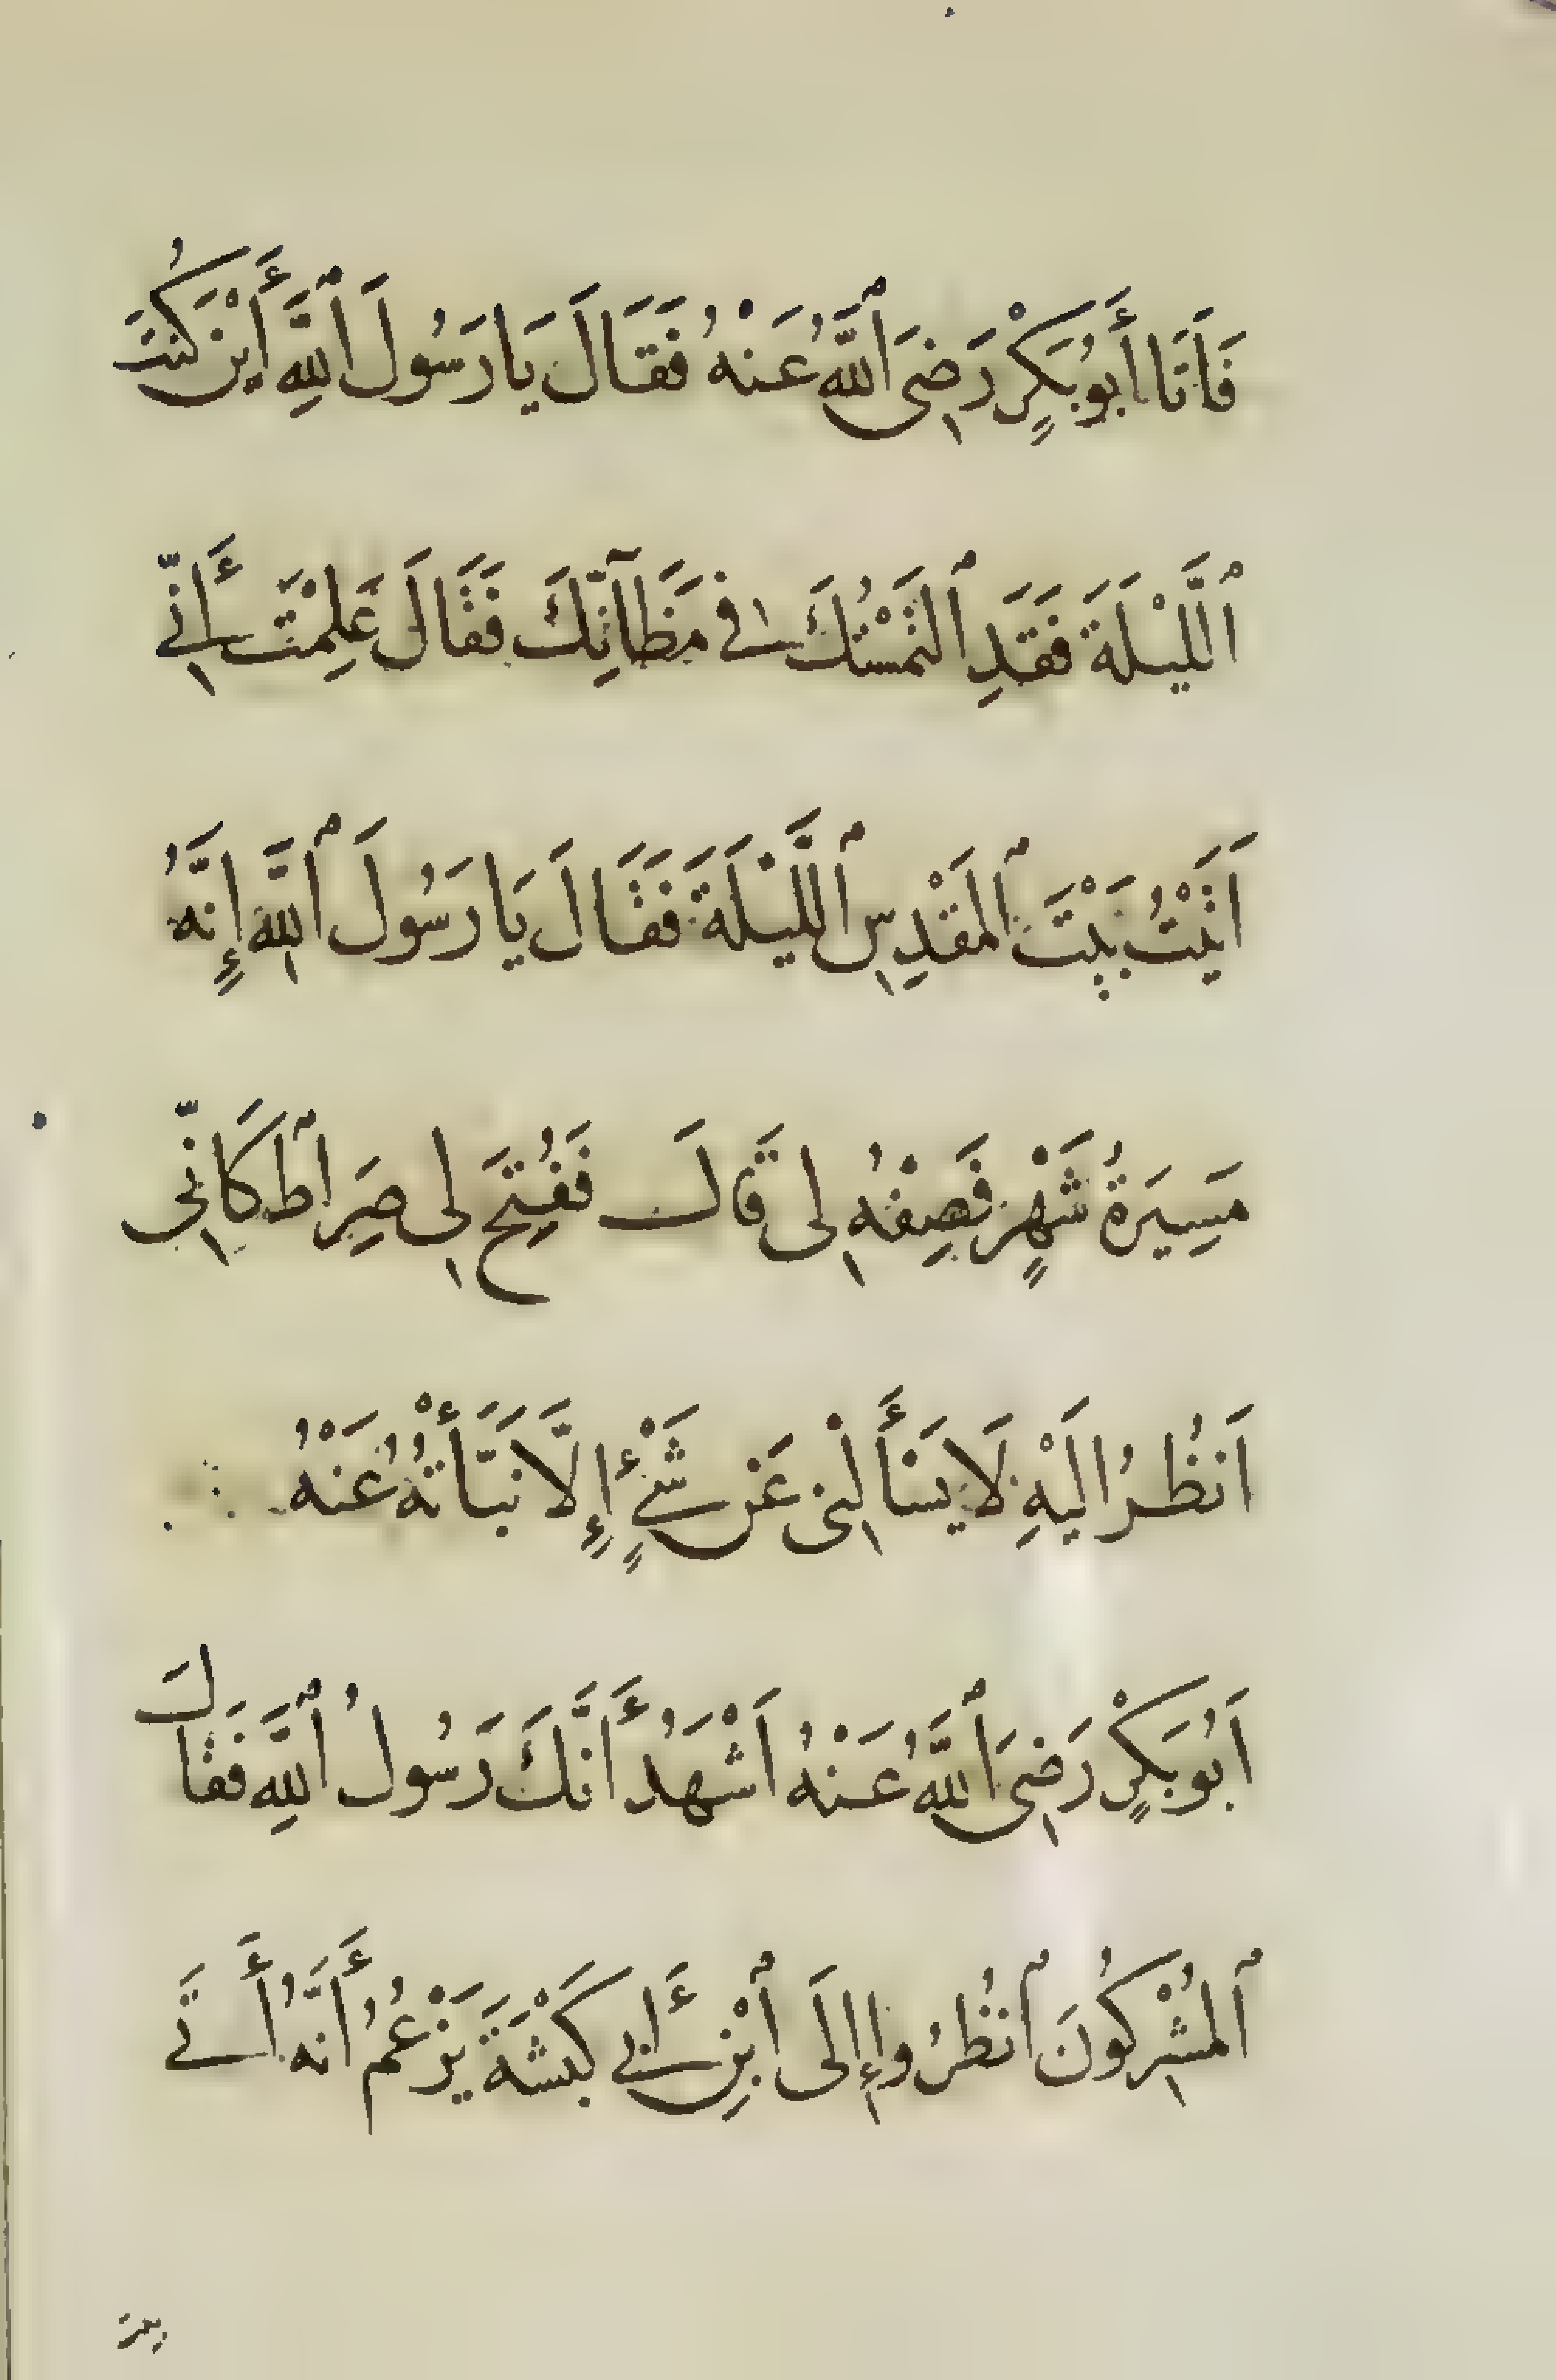 فَأَتَانَا أَبُو بَكْرٍ رَضِىَ ٱللَّهُ عَنْهُ فَقَالَ يَا رَسُولَ ٱللَّهِ أَيْنَ كُنْتَ
ٱللَّيْلَةَ فَقَدِ ٱلْتَمَسْتُكَ فِى مَظَآنِّكَ فَقَالَ عَلِمْتَ أَنِّى
اَتَيْتُ بَيْتَ ٱلْمَقْدِسِ ٱللَّيْلَةَ فَقَالَ يَا رَسُولَ ٱللَّهِ إِنَّهُ
مَسِيرَةُ شَهْرٍ فَصِفْهُ لِى قَالَ فَفُتِحَ لِى صِرَاطٌ كَاَنِّى
اَنْظُرُ اِلَيْهِ لَا يَسْأَلُنِى عَنْ شَىْءٍ إِلَّا نَبَّأْتُهُ عَنْهُ
اَبُو بَكْرٍ رَضِىَ ٱللَّهُ عَنْهُ اَشْهَدُ أَنَّكَ رَسُولُ ٱللَّهِ فَقَالَ
ٱلْمُشْرِكُونَ ٱنْظُرُوا إِلَى ٱبْنِ أَبِى كَبْشَةَ يَزْعُمُ أَنَّهُ أَتَى